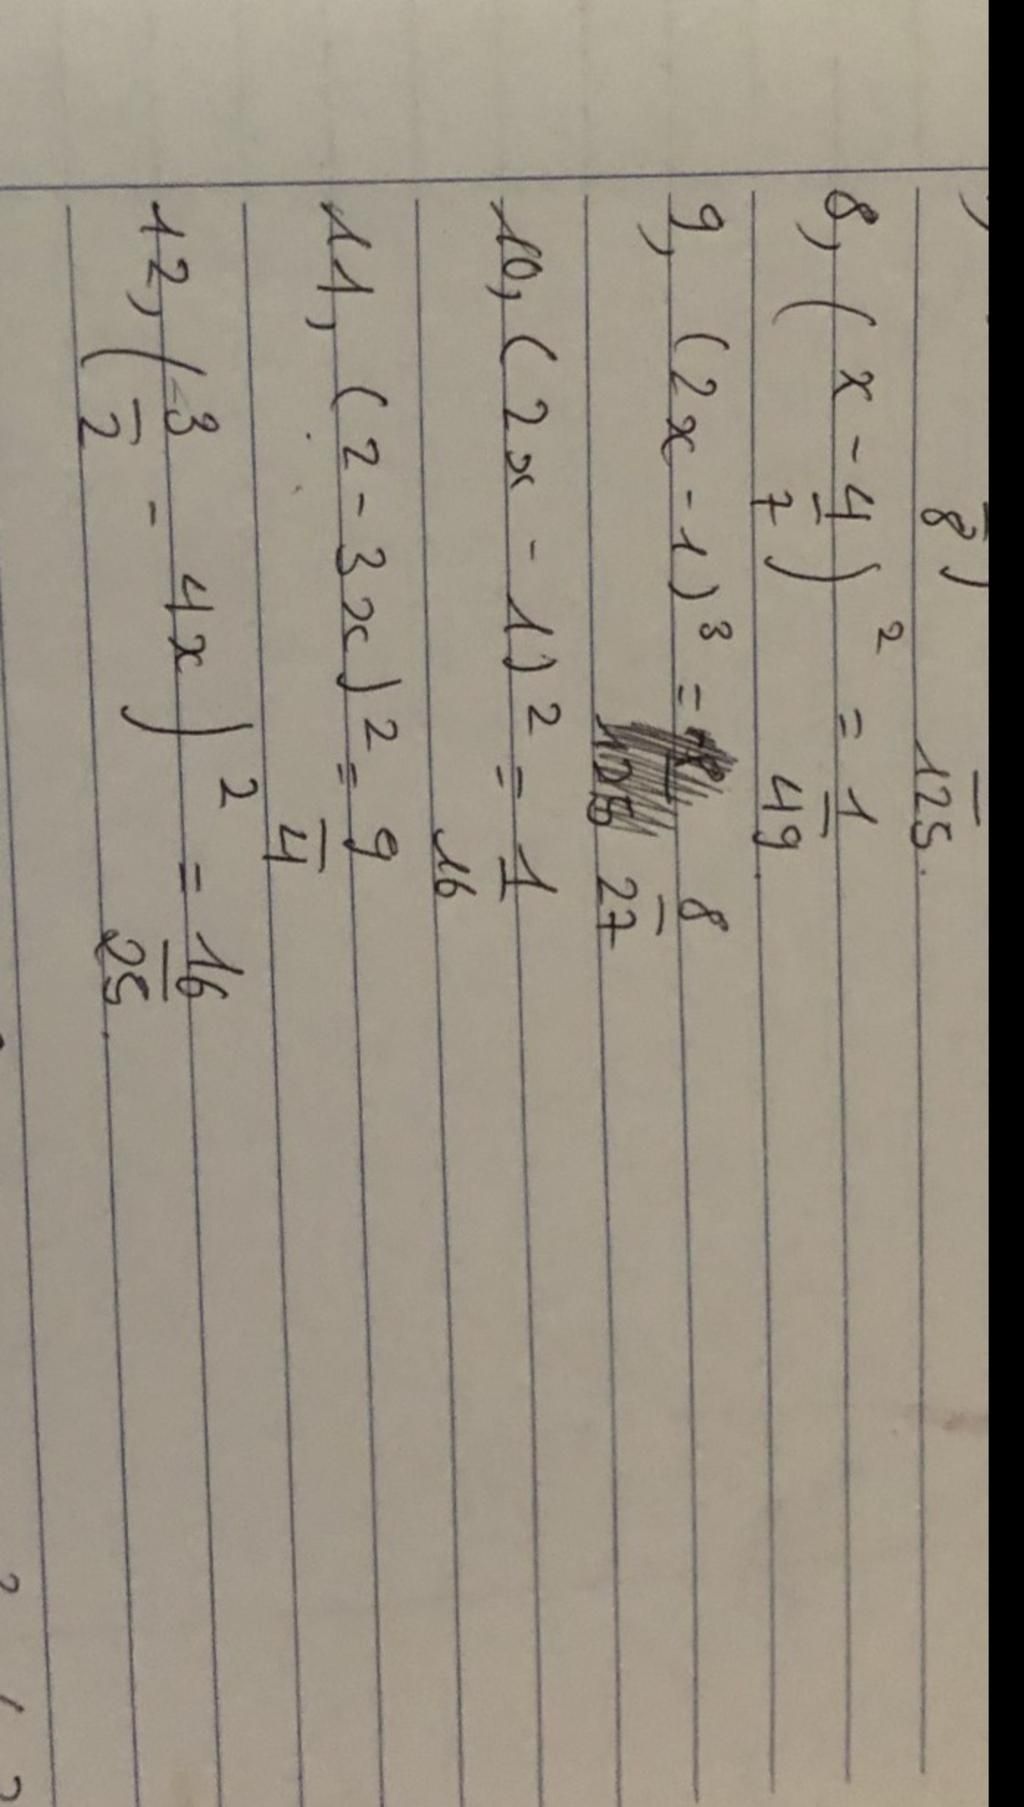 8) 125.
8, (x - 4/7)² = 1/49.
9, (2x - 1)³ = 8/27
10, (2x - 1)² = 1/16
11, (2 - 3x)² = 9/4
12, (3/2 - 4x)² = 16/25.